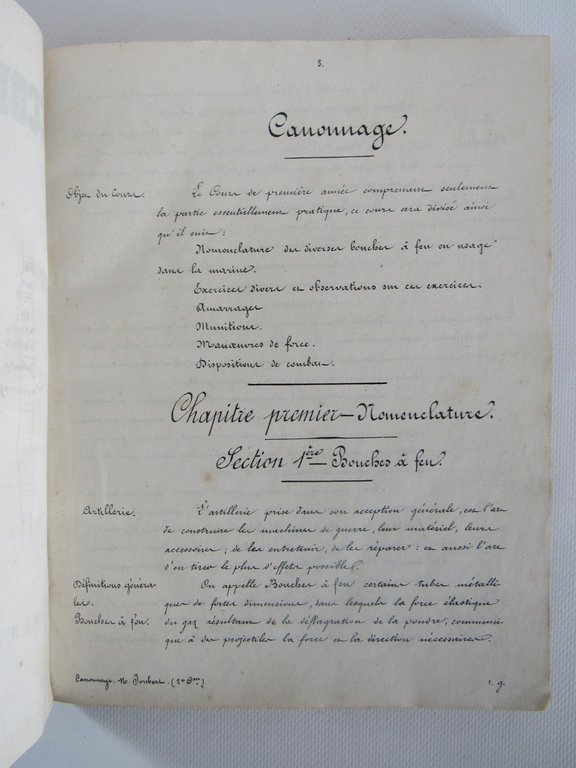 3.
Canonnage.
Objet du Cours. Le Cours de première année comprenant seulement
la partie essentiellement pratique, ce cours sera divisé ainsi
qu'il suit :
Nomenclature des diverses bouches à feu en usage
dans la marine.
Exercices divers et observations sur ces exercices.
Amarrages
Munitions.
Manœuvres de force.
Dispositions de combat.
Chapitre premier — Nomenclature.
Section 1ère — Bouches à feu.
Artillerie. L'artillerie prise dans son acception générale, est l'art
de construire les machines de guerre, leur matériel, leurs
accessoires ; de les entretenir, de les réparer : et aussi l'art
d'en tirer le plus d'effets possible.
Définitions généra- On appelle Bouches à feu certains tubes métalli-
les. ques de fortes dimensions, dans lesquels la force élastique
Bouches à feu. du gaz résultant de la déflagration de la poudre, communi-
que à des projectiles la force et la direction nécessaires.
Canonnage. M. Joubert. (2e Don)
1. g.